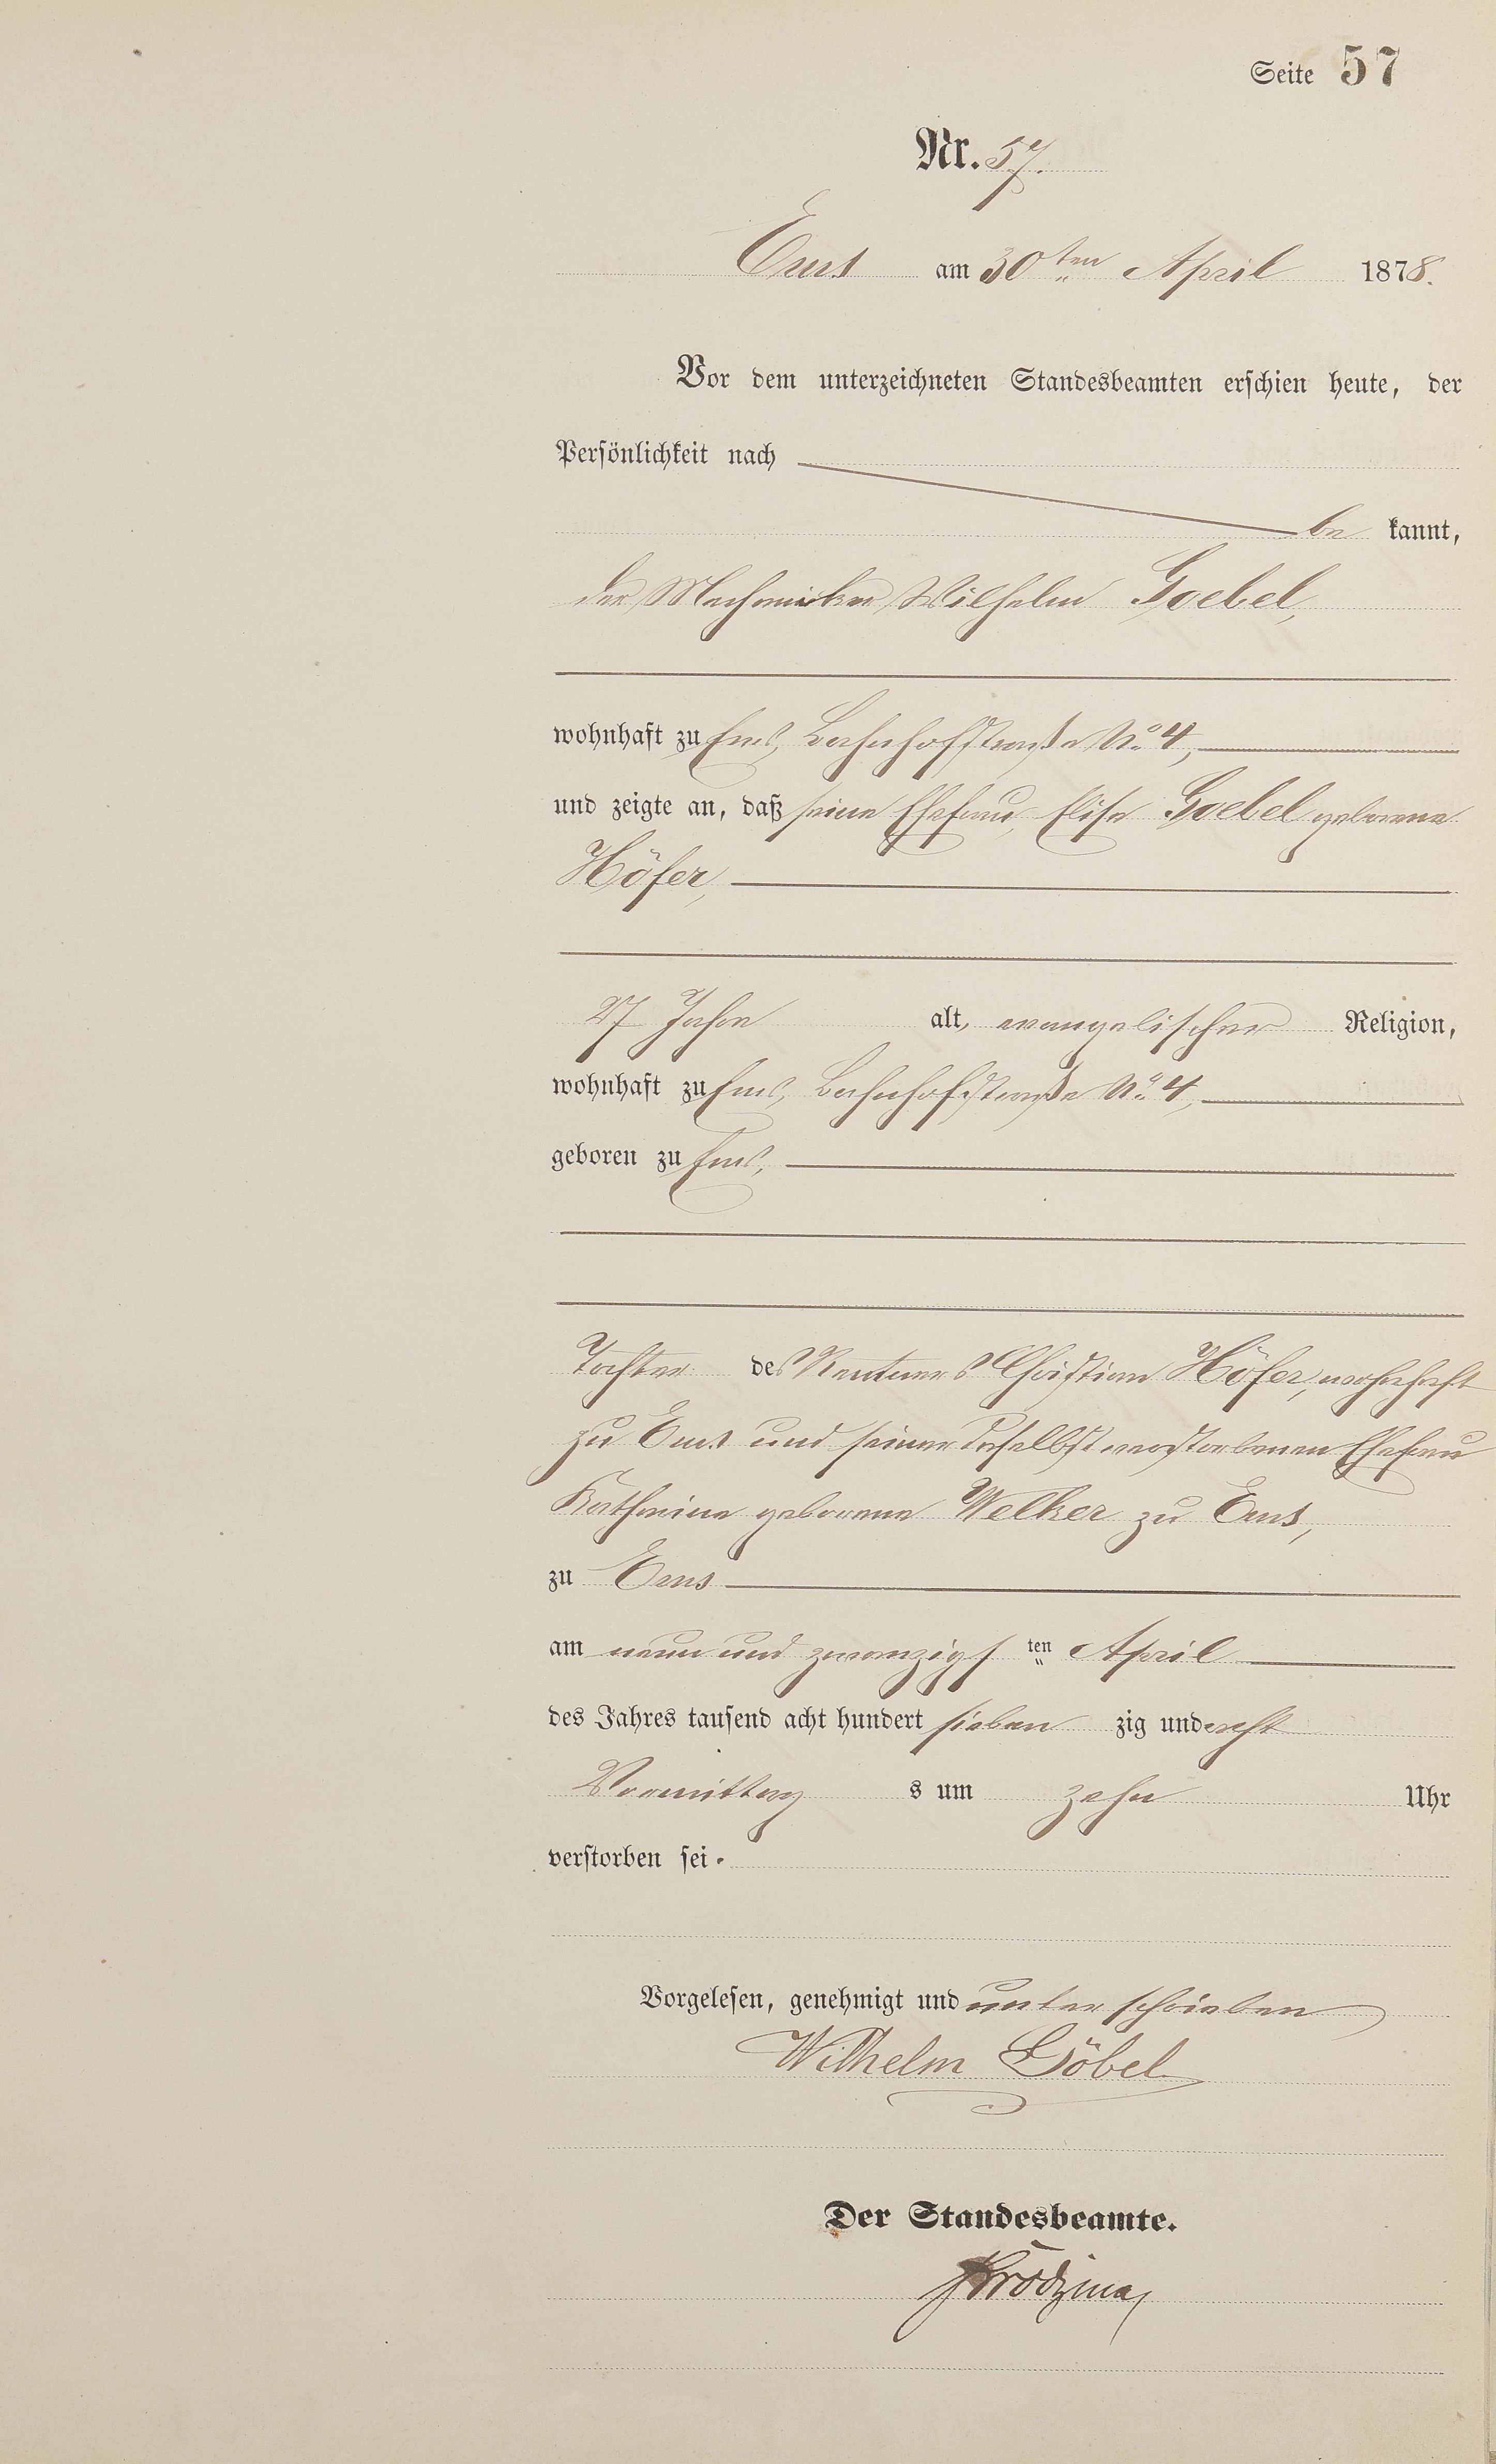 Seite 57
Nr. 57.
Ems am 30ten April 1878.
Vor dem unterzeichneten Standesbeamten erschien heute, der
Persönlichkeit nach
be kannt,
der Mechaniker Wilhelm Goebel,
wohnhaft zu Ems, Bahnhofstraße No 4,
und zeigte an, daß seine Ehefrau, Elise Goebel geborene
Höfer,
27 Jahre alt, evangelischer Religion,
wohnhaft zu Ems, Bahnhofstraße No 4,
geboren zu Ems,
Tochter des Rentners Christian Höfer, wohnhaft
zu Ems und seiner daselbst verstorbenen Ehefrau
Katharine geborene Welker zu Ems,
zu Ems
am neun und zwanzigsten April
des Jahres tausend acht hundert sieben zig und acht
Vormittag s um zehn Uhr
verstorben sei.
Vorgelesen, genehmigt und unterschrieben
Wilhelm Göbel
Der Standesbeamte.